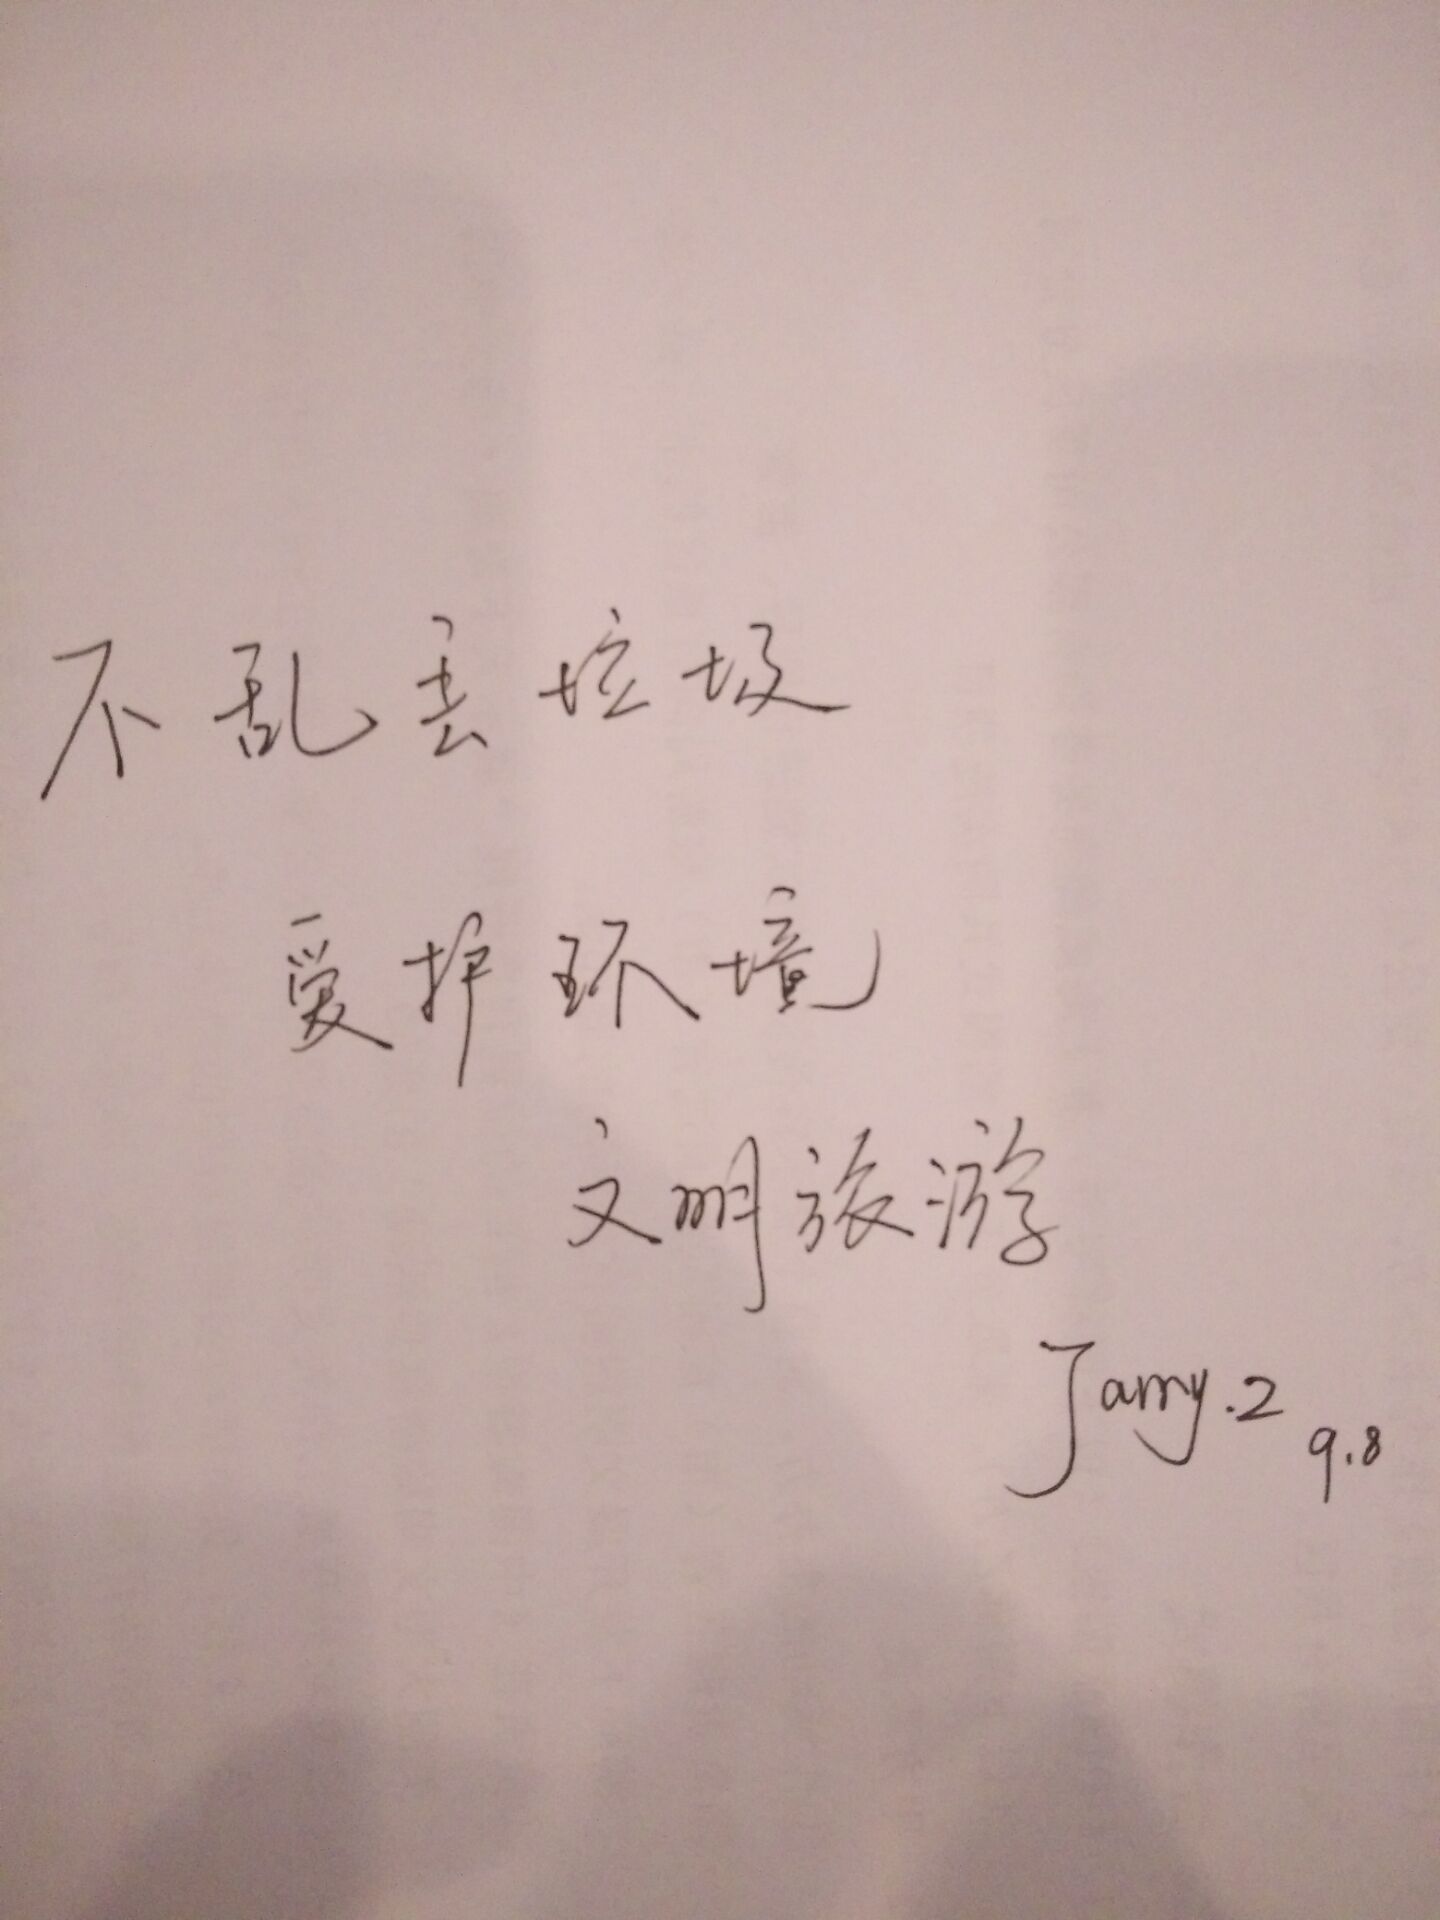 不乱丢垃圾
爱护环境
文明旅游
Jarry.Z
9.8